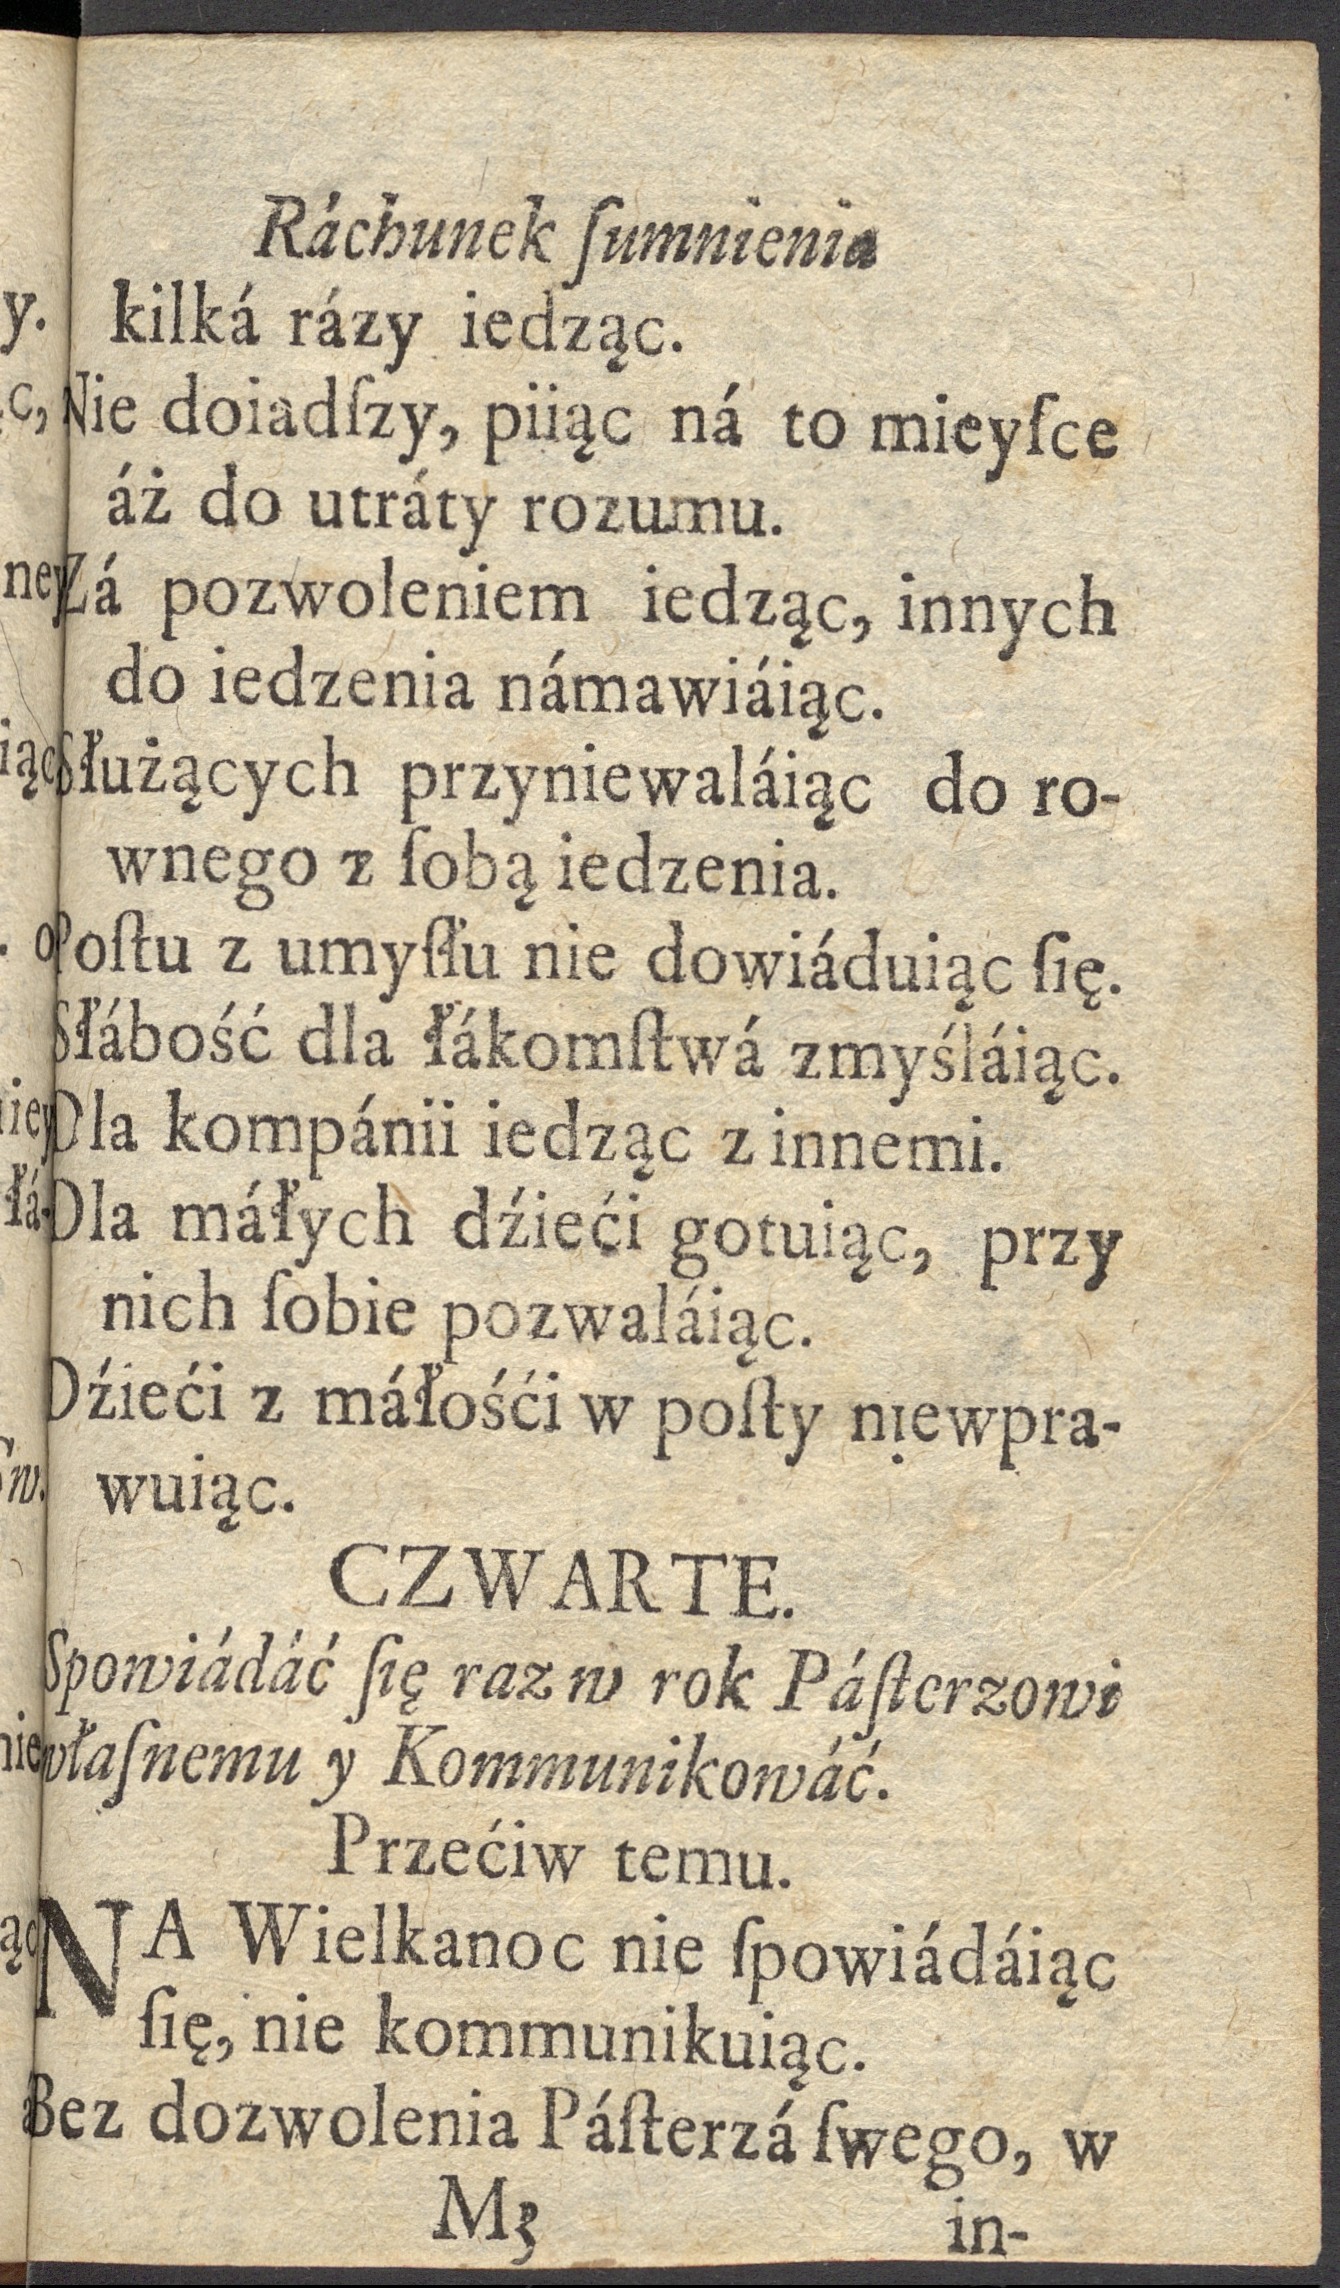 Ráchunek ſumnienia
kilká rázy iedząc.
Nie doiadſzy, piiąc ná to mieyſce
áż do utráty rozumu.
Zá pozwoleniem iedząc, innych
do iedzenia námawiáiąc.
Służących przyniewaláiąc do ro-
wnego z ſobą iedzenia.
Poſtu z umyſłu nie dowiáduiąc ſię.
Słábość dla łákomſtwá zmyśláiąc.
Dla kompánii iedząc z innemi.
Dla máłych dźieći gotuiąc, przy
nich ſobie pozwaláiąc.
Dźieći z máłośći w poſty niewpra-
wuiąc.
CZWARTE.
Spowiádáć ſię raz w rok Páſterzowi
właſnemu y Kommunikowáć.
Przećiw temu.
NA Wielkanoc nie ſpowiádáiąc
ſię, nie kommunikuiąc.
Bez dozwolenia Páſterzá ſwego, w
M3 in-